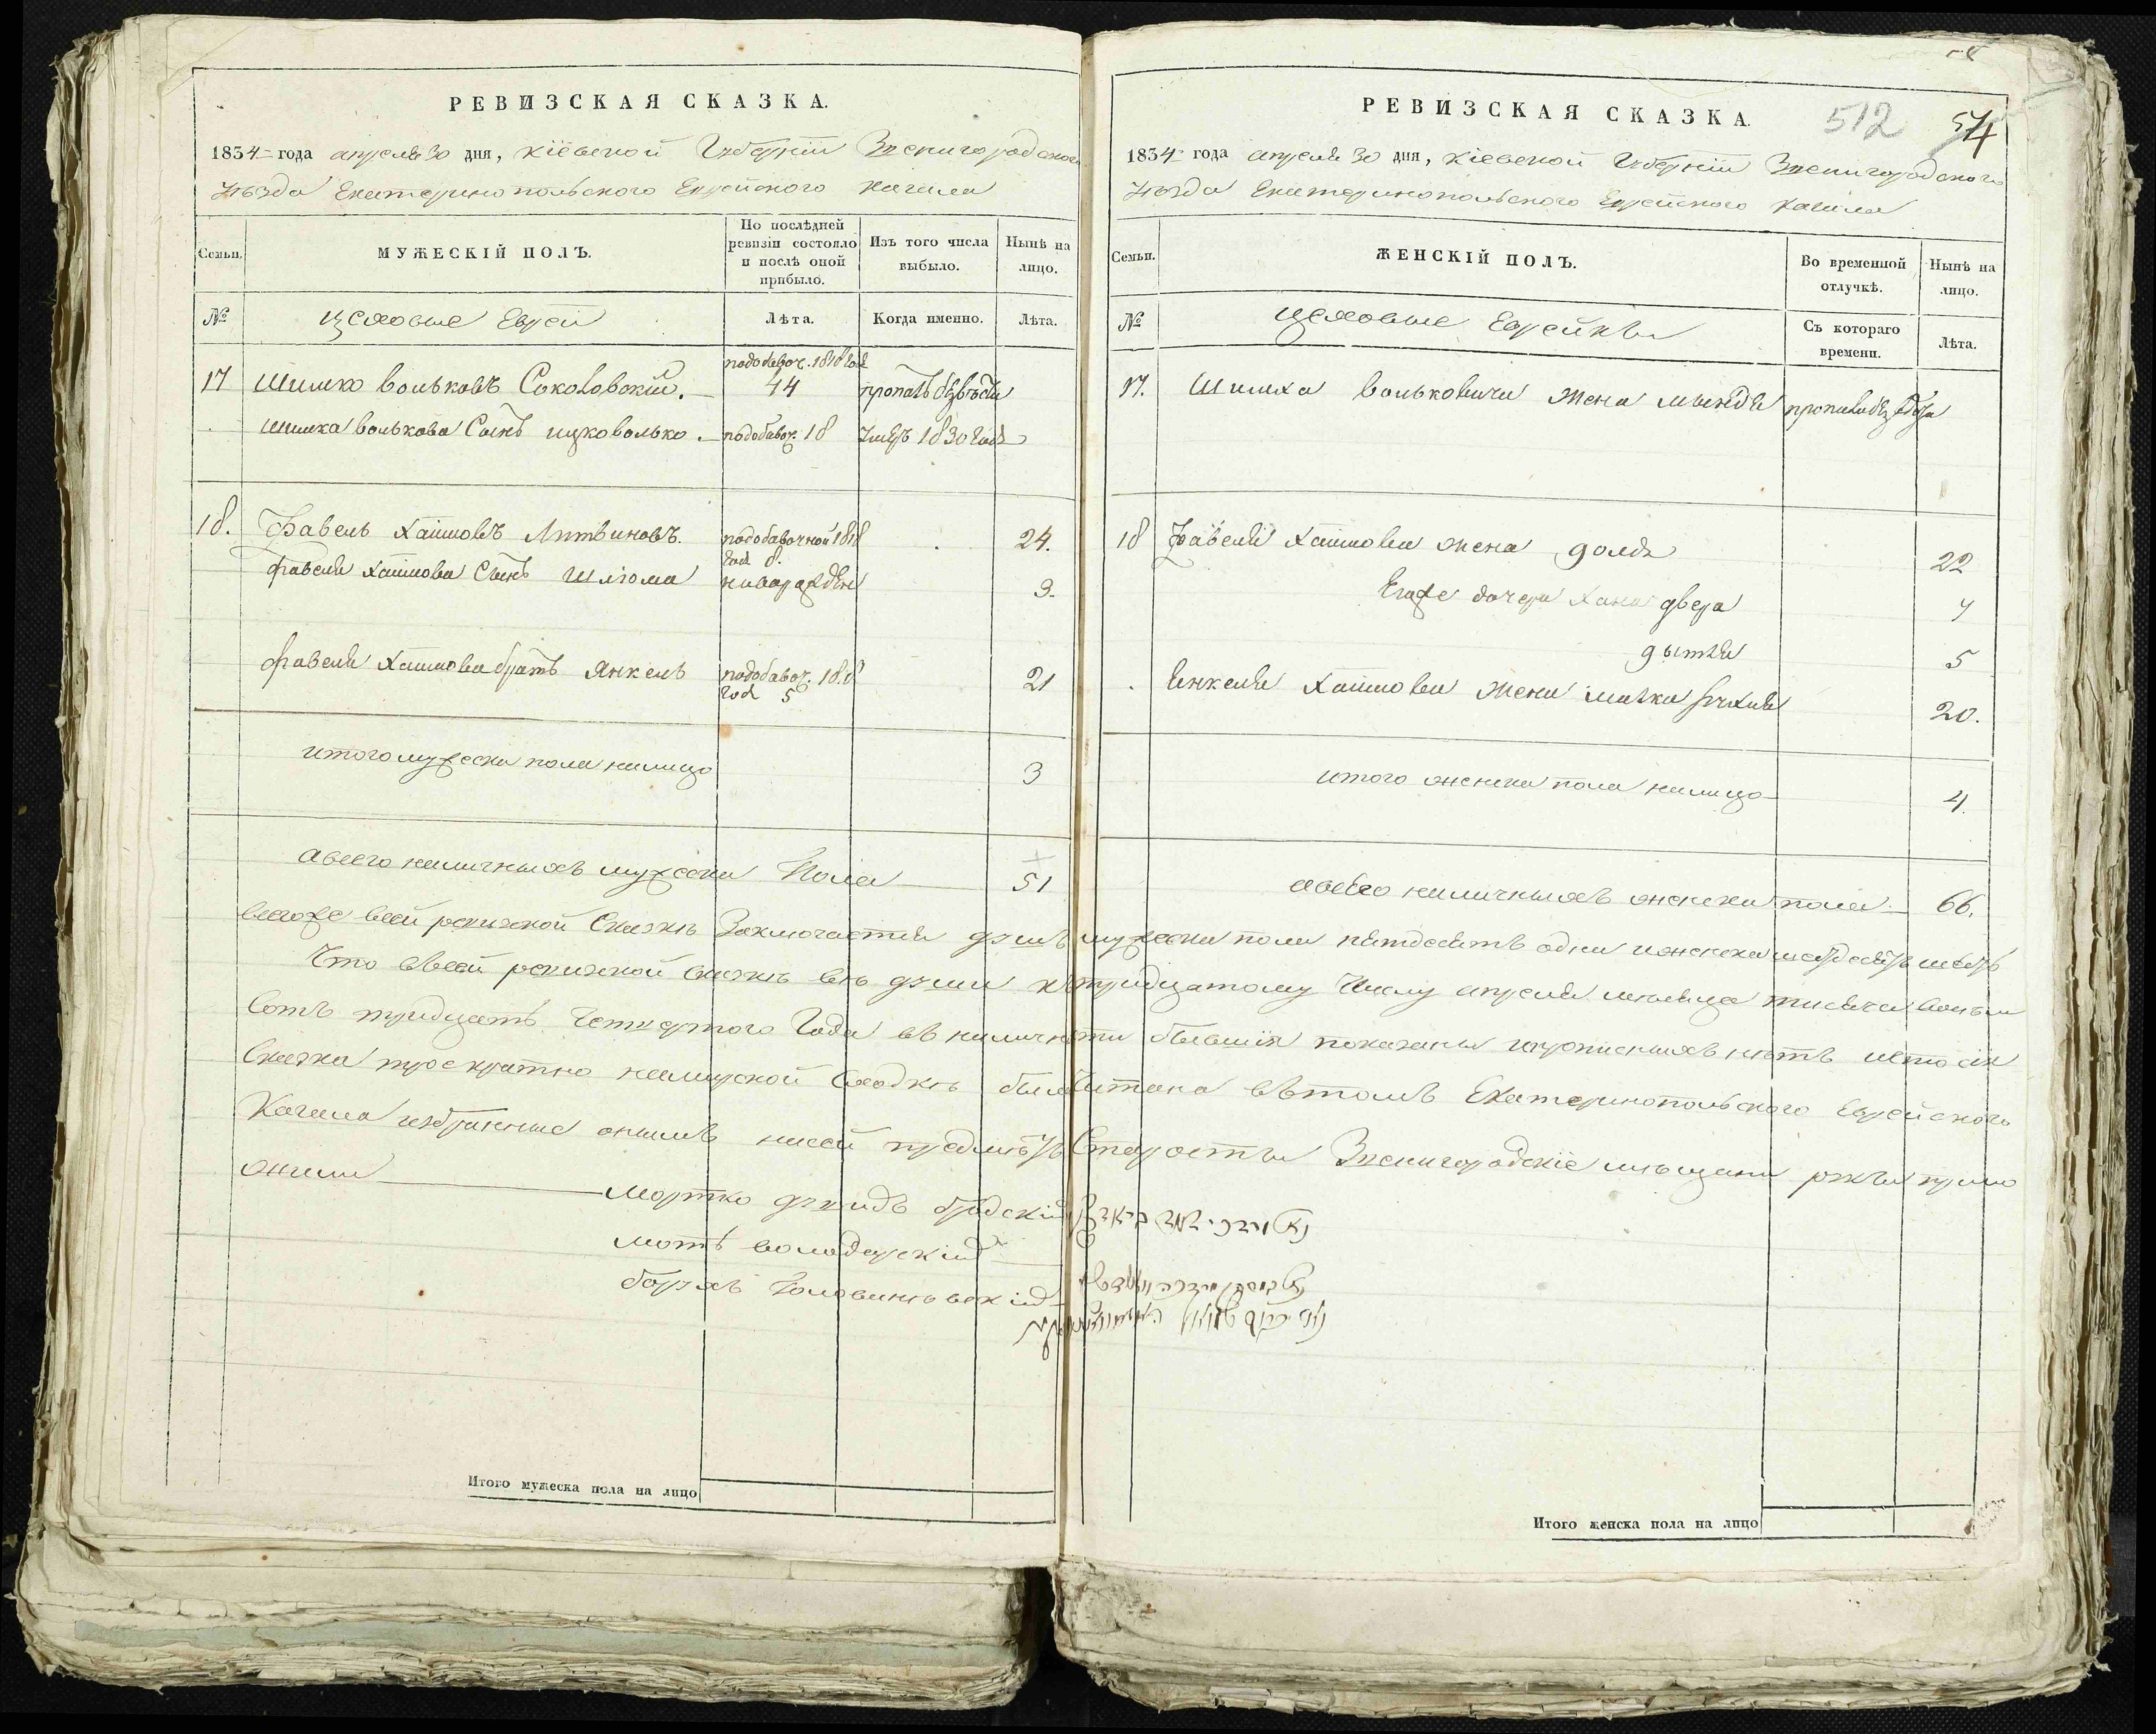 РЕВИЗСКАЯ СКАЗКА.
1834 года апреля 30 дня, Кіевской Губерніи Звенигородского
Уѣзда Екатеринопольского Еврейского Кагала
Семьи.
МУЖЕСКІЙ ПОЛЪ.
По послѣдней ревизіи состояло и послѣ оной прибыло.
Изъ того числа выбыло.
Нынѣ на лицо.
№
Цеховые Евреи
Лѣта.
Когда именно.
Лѣта.
17 Шимко Вольковъ Соколовский. подобавоч. 1818 год 44 пропалъ
Шимка Волькова Сынъ Ицковолько. подобавоч. 18 умеръ 1830 года
18. Файвель Хаимовъ Литвиновъ. подобавочной 1818 год 8. 24.
Файвеля Хаимова Сынъ Шлюма новорожден 3.
Файвеля Хаимова братъ Янкель подобавоч. 1818 год 5 21
итого мужеска пола налицо 3
а всего наличныхъ мужеска Пола 51
РЕВИЗСКАЯ СКАЗКА.
512 54
1834 года апреля 30 дня, Кіевской Губерніи Звенигородского
Уѣзда Екатеринопольского Еврейского Кагала
Семьи.
ЖЕНСКІЙ ПОЛЪ.
Во временной отлучкѣ.
Нынѣ на лицо.
№
Цеховые Еврейки
Съ котораго времени.
Лѣта.
17. Шимка Вольковича Жена Минде пропала
18 Файвеля Хаимова жена Голда 22
Егоже дочери Хана двера
5
Янкеля Хаимова Жена 20.
итого женска пола налицо 4.
а всего наличныхъ женска пола 66.
всегоже всей ревизкой Сказкѣ Заключается душъ мужеска пола пятдесятъ одна и женска шестдесятъ шесть
Что в всей ревизкой сказкѣ всѣ души къ тридцатому Числу апреля месяца тысяча восемь
сотъ тридцать Четвертого Года въ наличности бывшія показаны и прописныхъ нѣтъ и что сія
Сказка троекратно на мирской сходкѣ была читана въ томъ Екатеринопольского Еврейского
Кагала избранные онымъ на сей предметъ Старосты Звенигородскіе мѣщане руки прило
жили
Мортко Дувидъ бродский
Мотъ володарский
борухъ
Итого мужеска пола на лицо
Итого женска пола на лицо